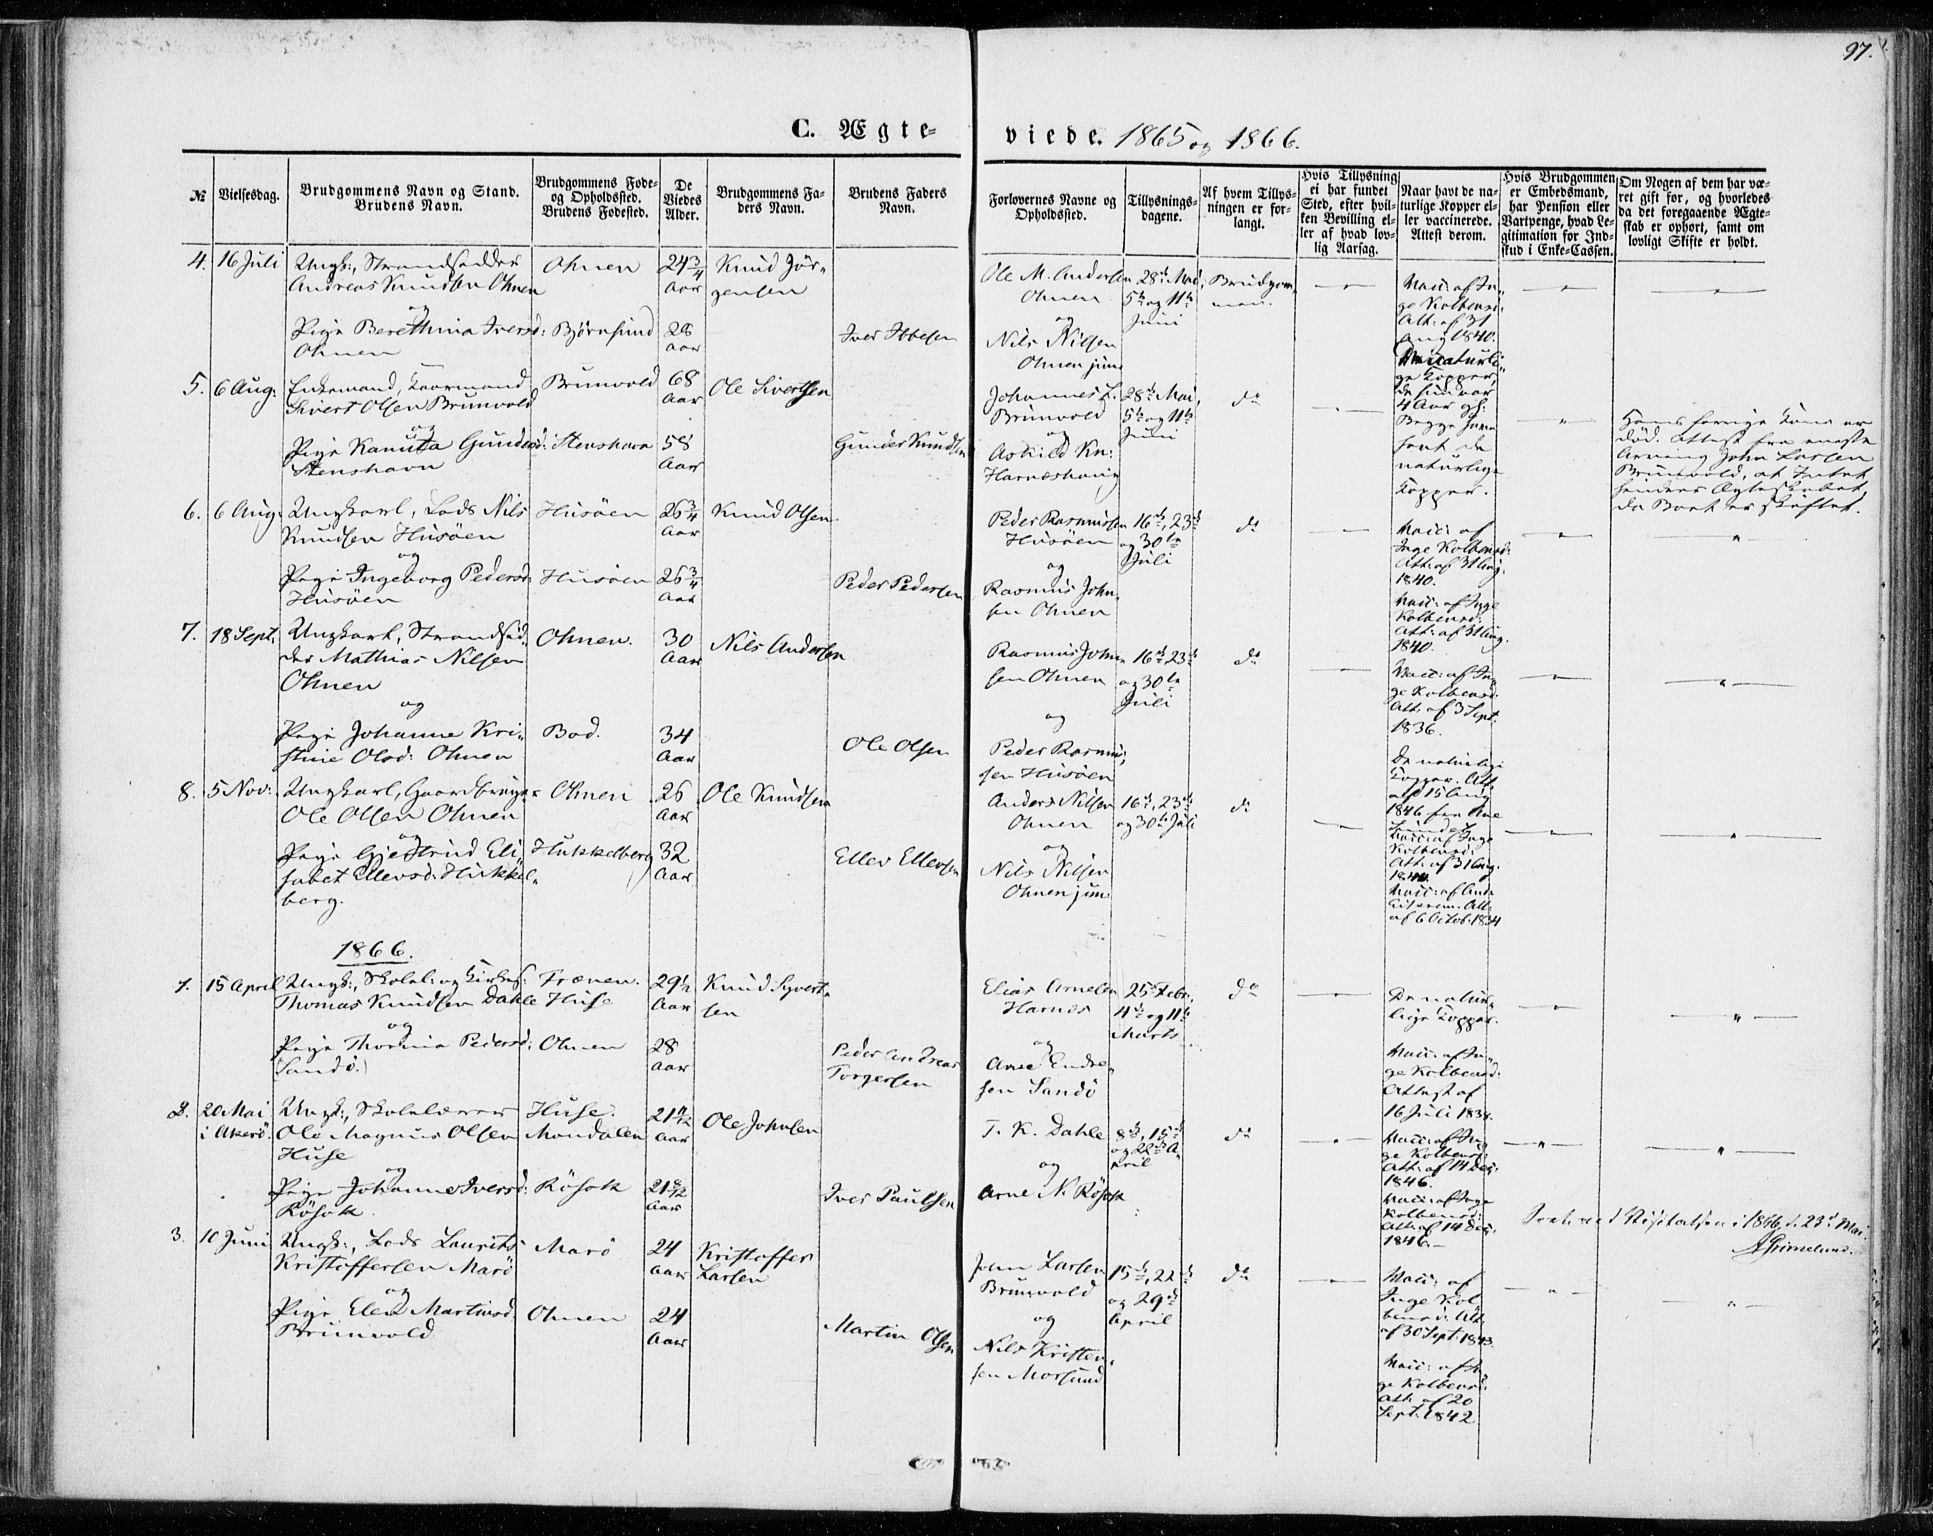 97.
C. Ægteviede. 1865 og 1866.
№
Vielsesdag.
Brudgommens Navn og Stand.
Brudens Navn.
Brudgommens Føde-
og Opholdssted.
Brudens Fødested.
De
Viedes
Alder.
Brudgommens Fa-
ders Navn.
Brudens Faders
Navn.
Forlovernes Navne og
Opholdssted.
Tillysnings-
dagene.
Af hvem Tillys-
ningen er for-
langt.
Hvis Tillysning
ei har fundet
Sted, efter hvil-
ken Bevilling el-
ler af hvad lov-
lig Aarsag.
Naar havt de na-
turlige Kopper el-
ler vaccinerede.
Attest derom.
Hvis Brudgommen
er Embedsmand,
har Pension eller
Vartpenge, hvad Le-
gitimation for Ind-
skud i Enke-Cassen.
Om Nogen af dem har væ-
ret gift før, og hvorledes
da det foregaaende Ægte-
skab er ophørt, samt om
lovligt Skifte er holdt.
4. 16 Juli
Ungk:, Strandsidder
Andreas Knudsen Ohnen
og
Pige Berethina Iversd:
Ohnen
Ohnen
Bjørnsund
24 3/4
Aar
28
Aar
Knud Jör-
gensen
Iver Ibbesen
Ole M. Andersen
Ohnen
og
Nils Nilsen
Ohnen jun:
28de Mai,
5te og 11te
Juni
Brudgom-
men.
Vacc: af In-
ge Kolbensd:
Att: af 31
Aug 1840.
De naturli-
ge Kopper,
da hun var
4 Aar gl:
5. 6 Aug:
Enkemand, Kaarmand
Sivert Olsen Brunvold
og
Pige Kanutta Gundersd:
Stenshavn
Brunvold
Stenshavn
68
Aar
58
Aar
Ole Sivertsen
Gunder Knudsen
Johannes L.
Brunvold
og
Askild Kn:
Harnæshaug
28de Mai,
5te og 11te
Juni
do
Begge have
havt de
naturlige
Kopper.
Hans forrige Kone er
død. Attest fra eneste
Arving John Larsen
Brunvold, at Intet
hindrer Ægteskabet,
da Boet er skiftet.
6. 6 Aug:
Ungkarl, Lods Nils
Knudsen Husöen
og
Pige Ingeborg Pedersd:
Husöen
Husöen
Husöen
26 3/4
Aar
26 3/4
Aar
Knud Olsen
Peder Pedersen
Peder Rasmussen
Husöen
og
Rasmus John-
sen Ohnen
16de, 23de
og 30te
Juli
do
Vacc: af
Inge Kolbensd:
Att: af 31 Aug.
1840.
Vacc: af Inge
Kolbensd:
Att: af 31 Aug.
1840.
7. 18 Sept.
Ungkarl, Strandsid-
der Mathias Nilsen
Ohnen
og
Pige Johanne Kri-
stine Olsd: Ohnen
Ohnen.
Bod.
30
Aar
34
Aar
Nils Andersen
Ole Olsen
Rasmus John-
sen Ohnen
og
Peder Rasmus-
sen Husöen
16de, 23de
og 30te
Juli
do
Vacc: af In-
ge Kolbensd:
Att: af 3 Sept.
1836.
De naturlige
Kopper. Att.
af 15 Aug
1846
8. 5 Nov:
Ungkarl, Gaardbruger
Ole Olsen Ohnen
og
Pige Gjertrud Eli-
sabet Ellevsd: Hukkel-
berg.
Ohnen
Hukkelberg
26
Aar
32
Aar
Ole Knudsen
Ellev Ellevsen
Anders Nilsen
Ohnen
og
Nils Nilsen
Ohnen jun:
16de, 23de
og 30te Juli
do
Vacc: af Inge
Kolbensd:
Att: af 31 Aug.
1840.
Vacc: af
Att:
af 6 Octob: 1834
1866.
1. 15 April
Ungk:, Skolel: og Kirkes:
Thomas Knudsen Dahle
og
Pige Thorina Pedersd:
Sandö.
Frænen.
Huse
Ohnen
29 1/2
Aar
28
Aar
Knud Syvert-
sen
Peder Andreas
Torgersen
Elias Arnesen
Harnes
og
Arne Endre-
sen Sandö
25de Febr.,
4de og 11te
Marts
do
De natur-
lige Kopper.
Vacc: af In-
ge Kolbensd:
Attest af
16 Juli 1838.
2. 20 Mai
i Akerö.
Ungk:, Skolelærer
Ole Magnus Olsen
Huse
og
Pige Johanne Iversd:
Rösok.
Huse.
Mondalen
Rösok
21
Aar
21 8/12
Aar
Ole Johnsen
Iver Paulsen
T. K. Dahle
og
Arne N. Rösok
8de, 15de
og 22de A-
pril
do
Vacc: af In-
ge Kolbensd:
Att: af 14 Dec:
1846.
Vacc: af Inge
Kolbensd:
Att: af 14 Dec:
1846.
Visitatsen i 1866, d. 23de Mai.
A Grimelund.
3. 10 Juni
Ungk:, Lods Laurits
Kristoffersen Marö
og
Pige Elen Martinsd:
Brunvold
Marö
Ohnen
24
Aar
24
Aar
Kristoffer
Larsen
Martin Olsen
John Larsen
Brunvold
og
Nils Kristen-
sen Morsund
15de, 22de
og 29de
April
do
Vacc: af
Inge Kol-
bensd: Att.
af 30 Sept: 1843.
Vacc: af In-
ge Kolbensd:
Att: af 20
Sept: 1842